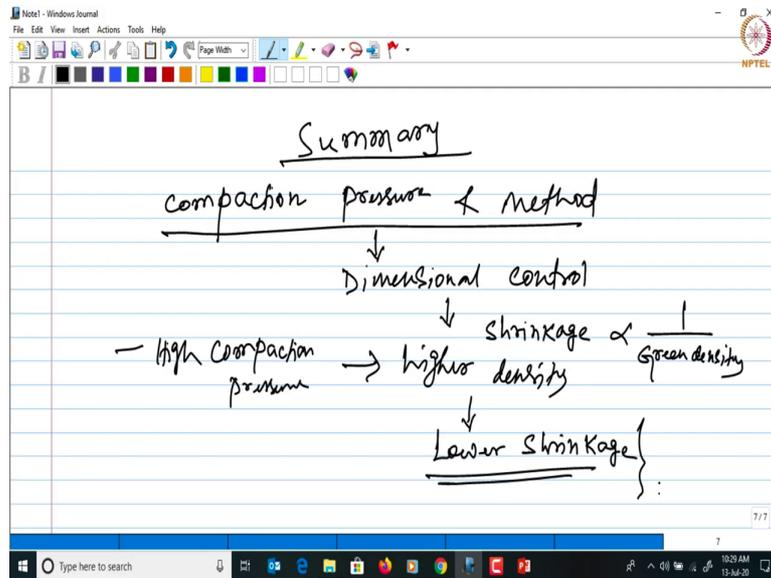 Note1 - Windows Journal
File Edit View Insert Actions Tools Help
Page Width
B I
NPTEL
Summary
Compaction pressure & Method
↓
Dimensional control
↓ Shrinkage ∝ 1 / Green density
- High Compaction pressure → higher density
↓
Lower Shrinkage
7/7
7
Type here to search
10:29 AM
13-Jul-20